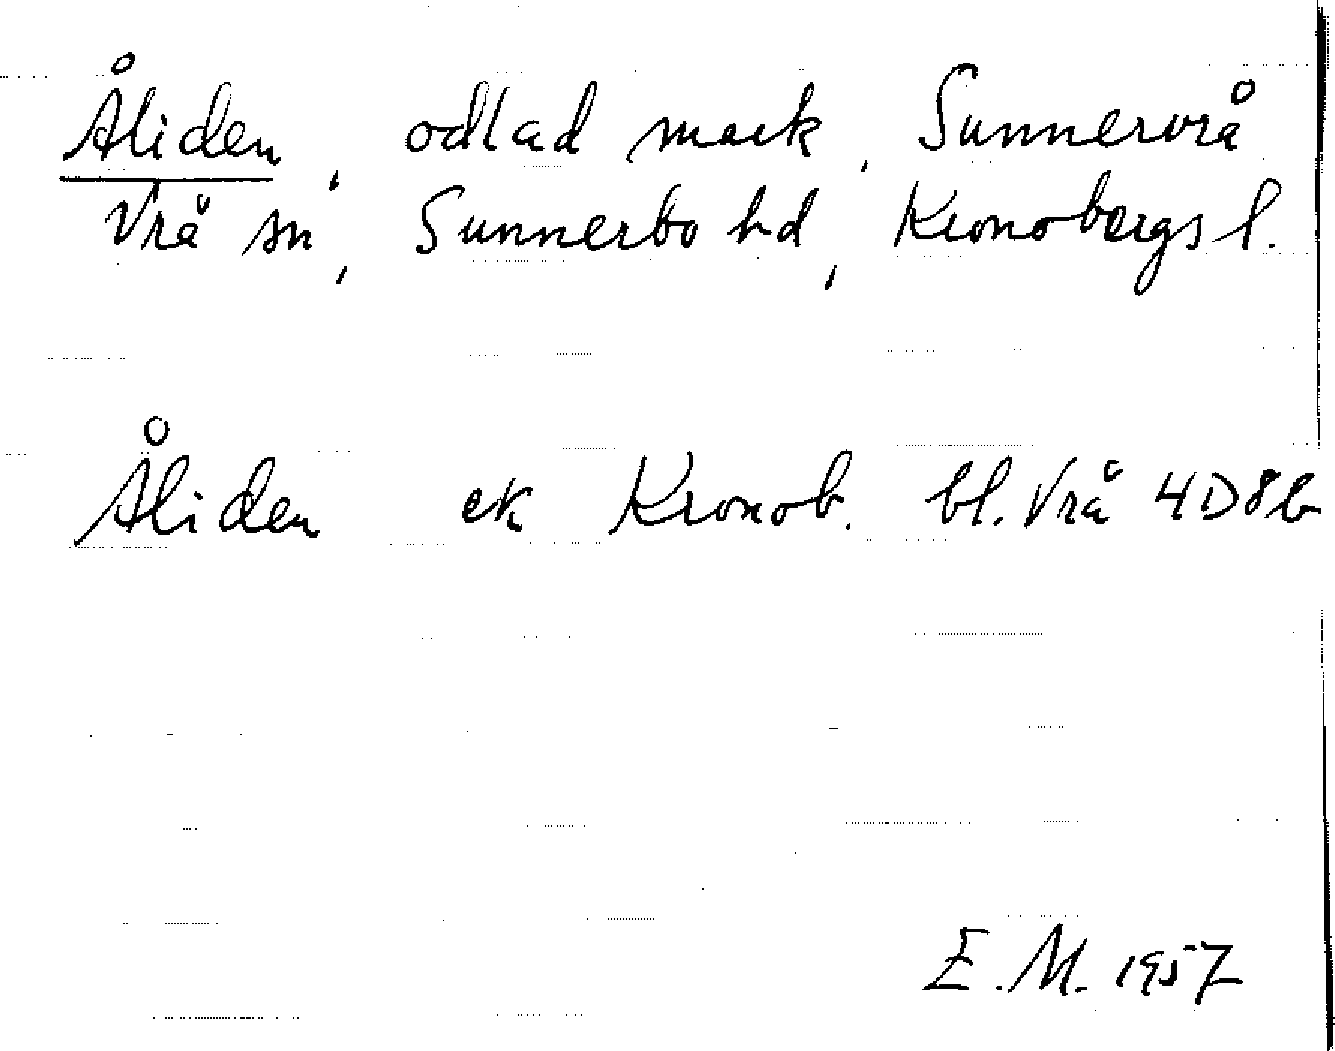 Åliden, odlad mark, Sunnervrå
Vrå sn, Sunnerbo hd, Kronobergs l.
Åliden ek Kronob. bl. Vrå 4D8b
E.M. 1957